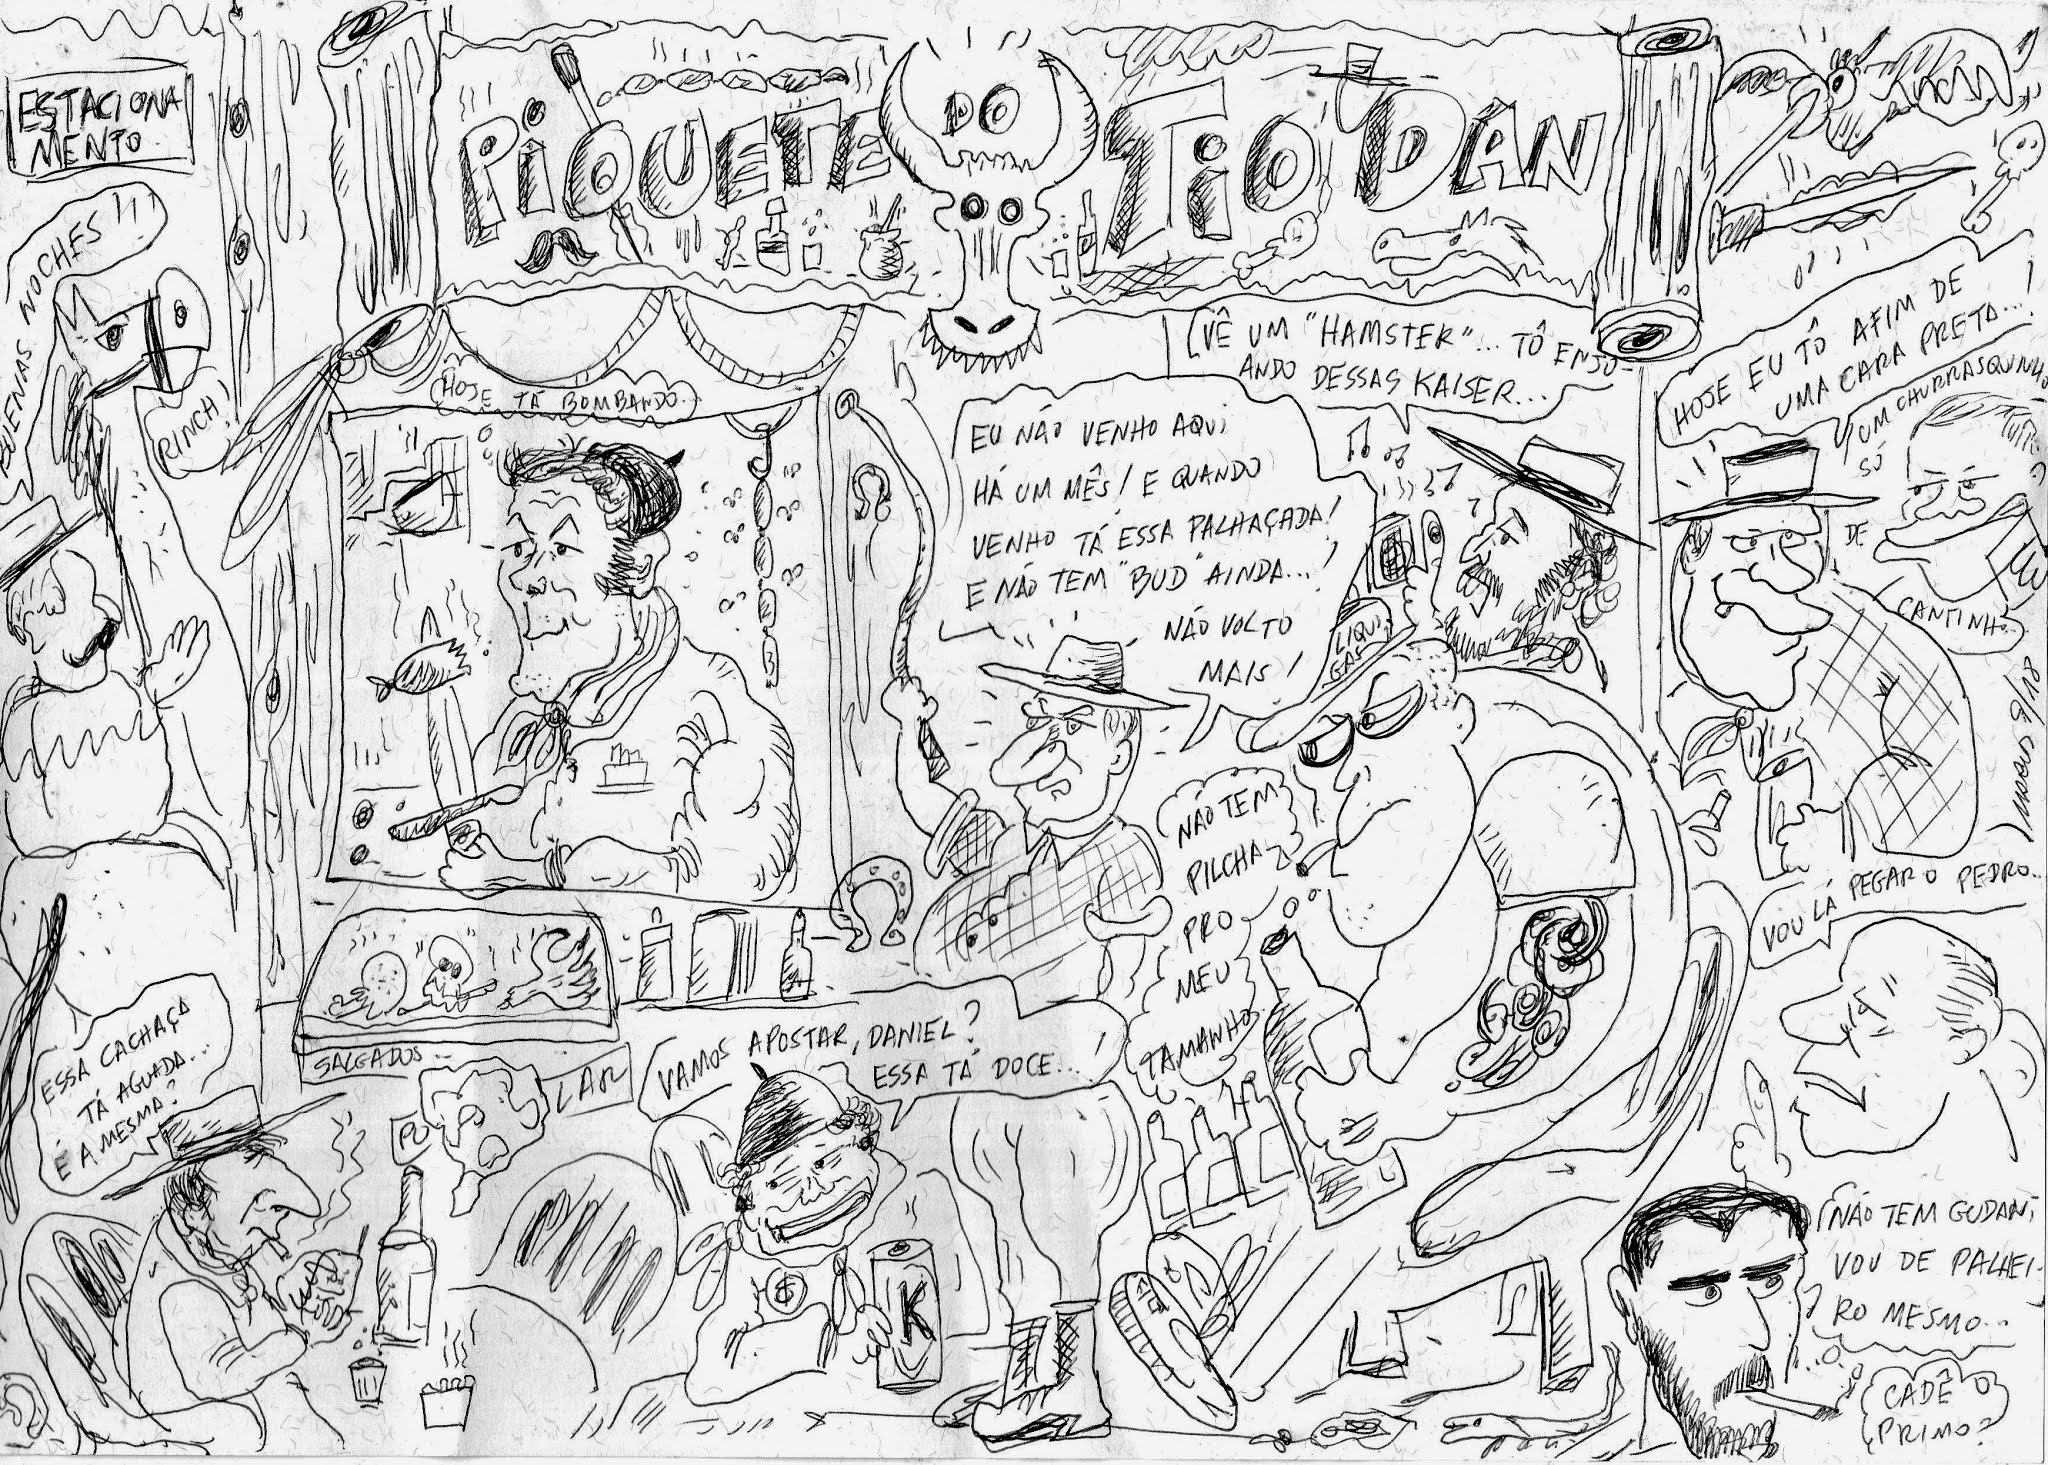 ESTACIONA
MENTO
PiQUETE
DO
TiO DAN
BUENAS NOCHES!!
RINCH!
HOJE TÁ BOMBANDO...
VÊ UM "HAMSTER"... TÔ ENJO-
ANDO DESSAS KAISER...
HOJE EU TÔ AFIM DE
UMA CARA PRETA...!
UM CHURRASQUINHO
SÓ
DE
CANTINHO...
EU NÃO VENHO AQUI
HÁ UM MÊS! E QUANDO
VENHO TÁ ESSA PALHAÇADA!
E NÃO TEM "BUD" AINDA...!
NÃO VOLTO
MAIS!
LIQUI
GAS
NÃO TEM
PILCHA
PRO
MEU
TAMANHO
9/18
VOU LÁ PEGAR O PEDRO...
ESSA CACHAÇA
TÁ AGUADA...
É A MESMA?
SALGADOS...
PU
LAR
VAMOS APOSTAR, DANIEL?
ESSA TÁ DOCE...
K
NÃO TEM GUDANI
VOU DE PALHEI-
RO MESMO...
CADÊ O
PRIMO?